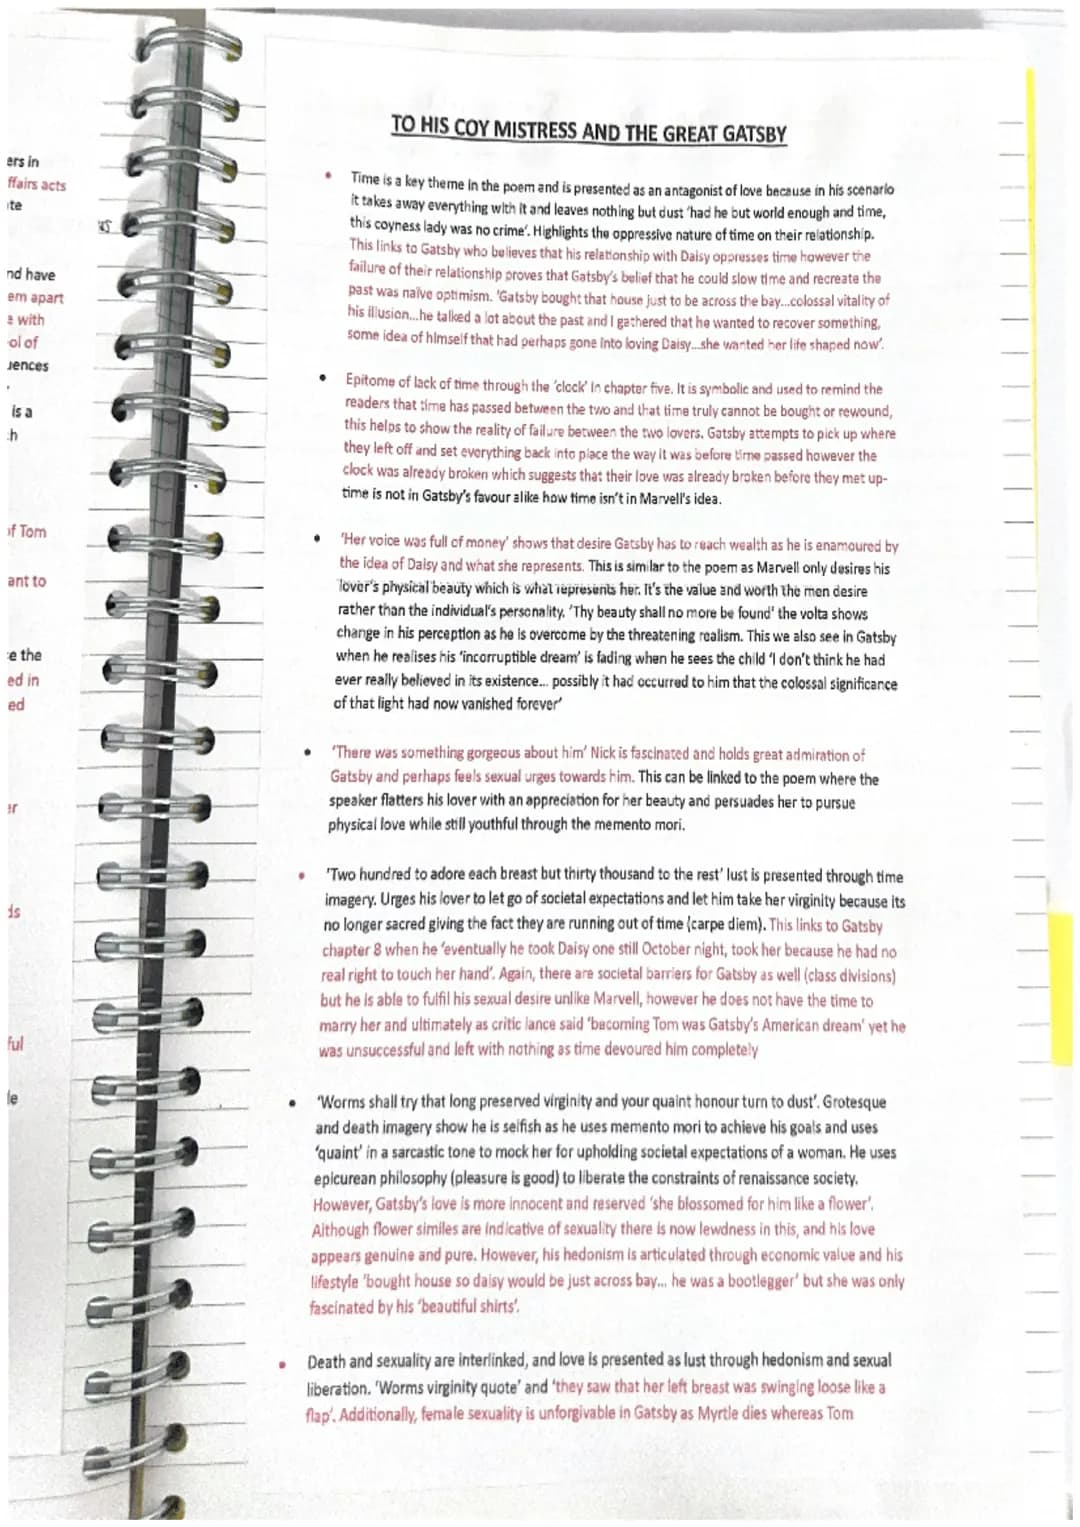 ers in
ffairs acts
te
us
nd have
em apart
e with
ol of
uences
is a
h
of Tom
ant to
e the
ed in
ed
er
ds
ful
le
TO HIS COY MISTRESS AND THE GREAT GATSBY
• Time is a key theme in the poem and is presented as an antagonist of love because in his scenario
it takes away everything with it and leaves nothing but dust 'had he but world enough and time,
this coyness lady was no crime'. Highlights the oppressive nature of time on their relationship.
This links to Gatsby who believes that his relationship with Daisy oppresses time however the
failure of their relationship proves that Gatsby's belief that he could slow time and recreate the
past was naïve optimism. 'Gatsby bought that house just to be across the bay...colossal vitality of
his illusion...he talked a lot about the past and I gathered that he wanted to recover something,
some idea of himself that had perhaps gone into loving Daisy...she wanted her life shaped now'.
• Epitome of lack of time through the 'clock' in chapter five. It is symbolic and used to remind the
readers that time has passed between the two and that time truly cannot be bought or rewound,
this helps to show the reality of failure between the two lovers. Gatsby attempts to pick up where
they left off and set everything back into place the way it was before time passed however the
clock was already broken which suggests that their love was already broken before they met up-
time is not in Gatsby's favour alike how time isn't in Marvell's idea.
• 'Her voice was full of money' shows that desire Gatsby has to reach wealth as he is enamoured by
the idea of Daisy and what she represents. This is similar to the poem as Marvell only desires his
lover's physical beauty which is what represents her. It's the value and worth the men desire
rather than the individual's personality. 'Thy beauty shall no more be found' the volta shows
change in his perception as he is overcome by the threatening realism. This we also see in Gatsby
when he realises his 'incorruptible dream' is fading when he sees the child 'I don't think he had
ever really believed in its existence... possibly it had occurred to him that the colossal significance
of that light had now vanished forever'
• 'There was something gorgeous about him' Nick is fascinated and holds great admiration of
Gatsby and perhaps feels sexual urges towards him. This can be linked to the poem where the
speaker flatters his lover with an appreciation for her beauty and persuades her to pursue
physical love while still youthful through the memento mori.
• 'Two hundred to adore each breast but thirty thousand to the rest' lust is presented through time
imagery. Urges his lover to let go of societal expectations and let him take her virginity because its
no longer sacred giving the fact they are running out of time (carpe diem). This links to Gatsby
chapter 8 when he 'eventually he took Daisy one still October night, took her because he had no
real right to touch her hand'. Again, there are societal barriers for Gatsby as well (class divisions)
but he is able to fulfil his sexual desire unlike Marvell, however he does not have the time to
marry her and ultimately as critic lance said 'becoming Tom was Gatsby's American dream' yet he
was unsuccessful and left with nothing as time devoured him completely
• 'Worms shall try that long preserved virginity and your quaint honour turn to dust'. Grotesque
and death imagery show he is selfish as he uses memento mori to achieve his goals and uses
'quaint' in a sarcastic tone to mock her for upholding societal expectations of a woman. He uses
epicurean philosophy (pleasure is good) to liberate the constraints of renaissance society.
However, Gatsby's love is more innocent and reserved 'she blossomed for him like a flower'.
Although flower similes are indicative of sexuality there is now lewdness in this, and his love
appears genuine and pure. However, his hedonism is articulated through economic value and his
lifestyle 'bought house so daisy would be just across bay... he was a bootlegger' but she was only
fascinated by his 'beautiful shirts'.
• Death and sexuality are interlinked, and love is presented as lust through hedonism and sexual
liberation. 'Worms virginity quote' and 'they saw that her left breast was swinging loose like a
flap'. Additionally, female sexuality is unforgivable in Gatsby as Myrtle dies whereas Tom